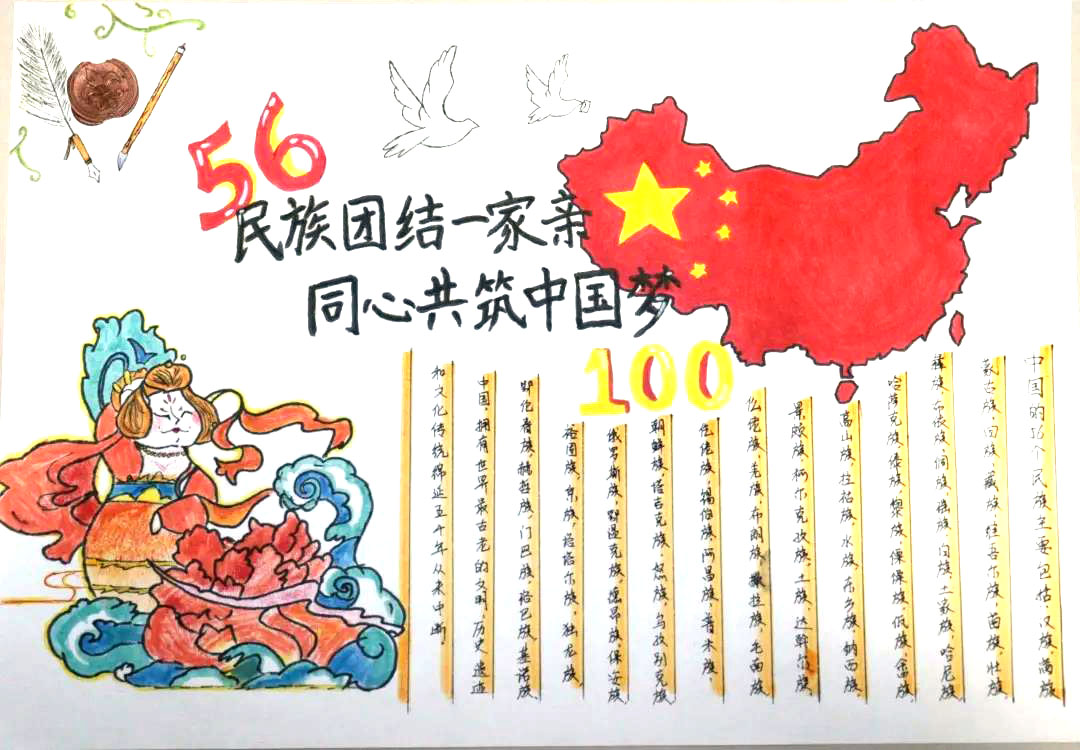 56
民族团结一家亲
同心共筑中国梦
100
中国的56个民族主要包括：汉族、满族、
蒙古族、回族、藏族、维吾尔族、苗族、壮族、
彝族、布依族、侗族、瑶族、白族、土家族、哈尼族、
哈萨克族、傣族、黎族、傈僳族、佤族、畲族、
高山族、拉祜族、水族、东乡族、纳西族、
景颇族、柯尔克孜族、土族、达斡尔族、
仫佬族、羌族、布朗族、撒拉族、毛南族、
仡佬族、锡伯族、阿昌族、普米族、
朝鲜族、塔吉克族、怒族、乌孜别克族、
俄罗斯族、鄂温克族、德昂族、保安族、
裕固族、京族、塔塔尔族、独龙族、
鄂伦春族、赫哲族、门巴族、珞巴族、基诺族。
中国，拥有世界最古老的文明，历史遗迹
和文化传统绵延五千年从未中断。